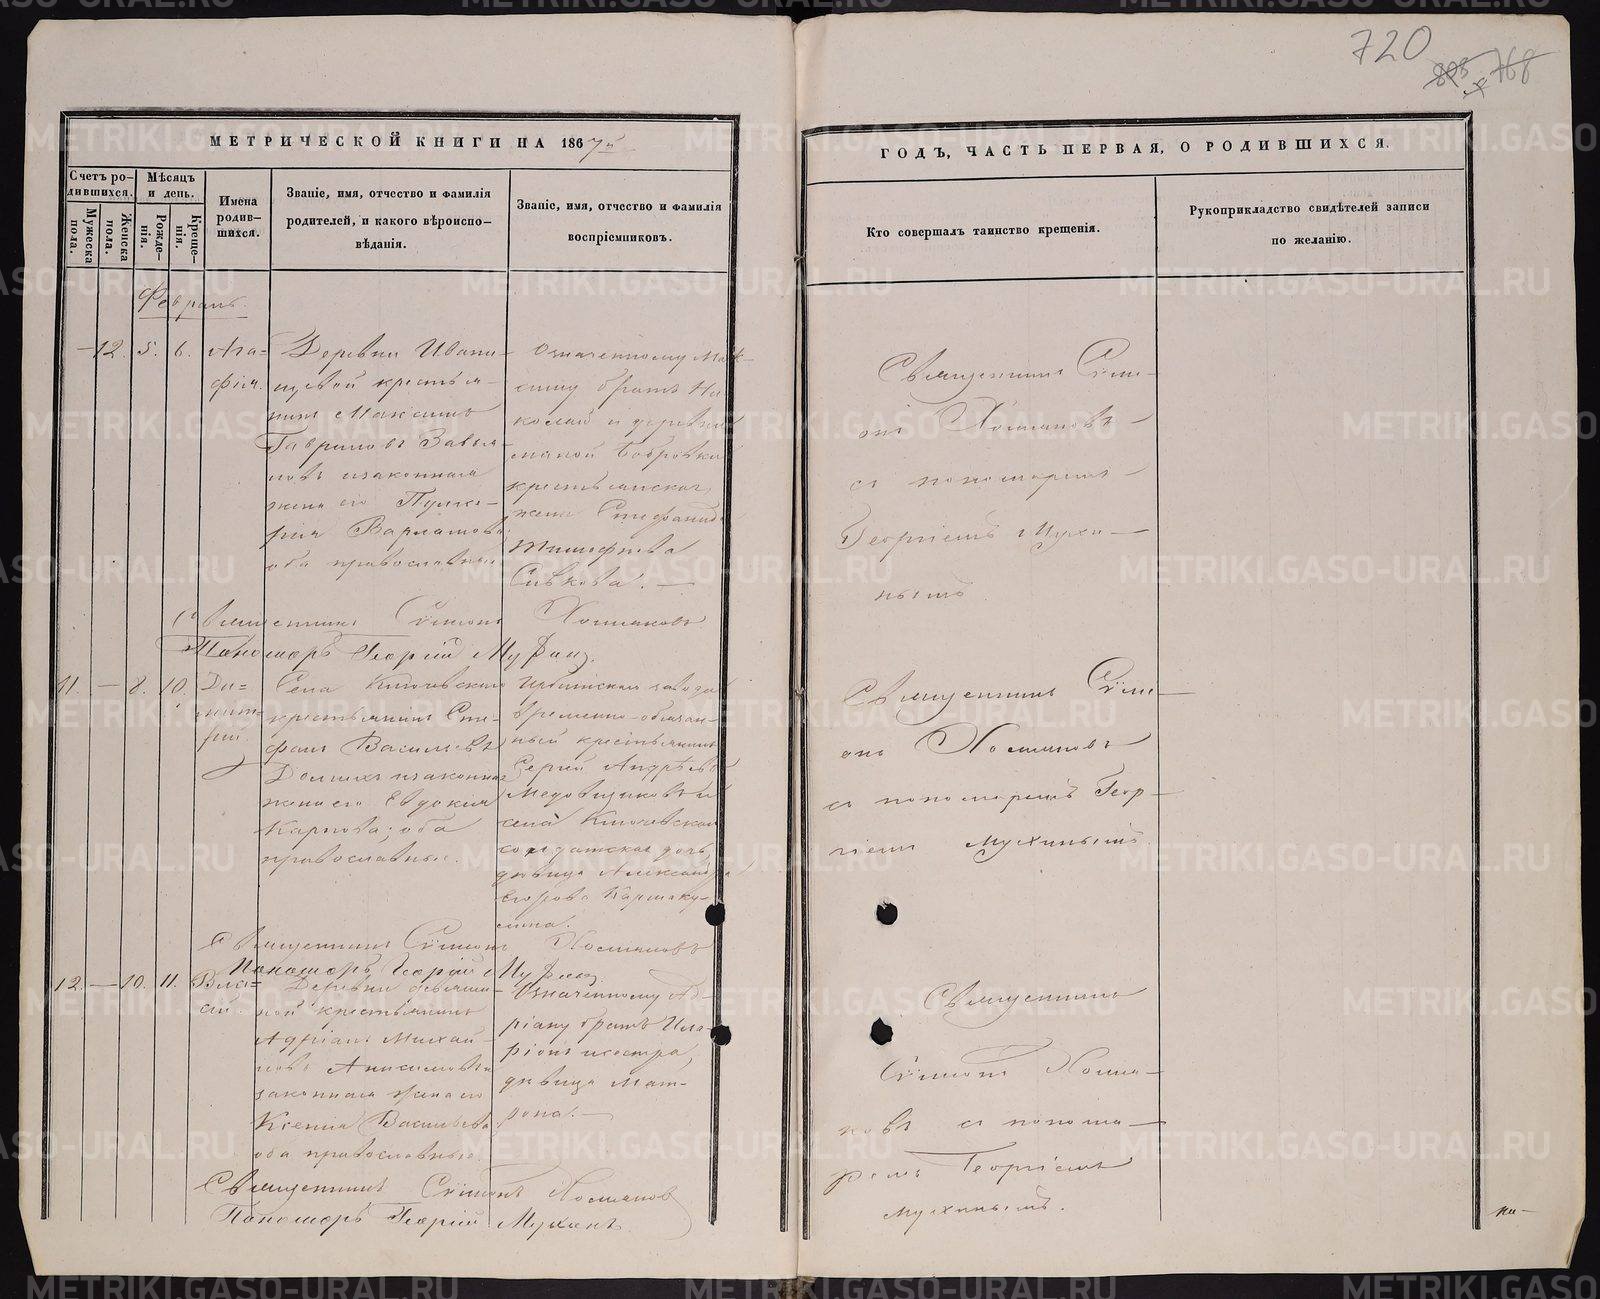 720
893 768
МЕТРИЧЕСКОЙ КНИГИ НА 1867й
ГОДЪ, ЧАСТЬ ПЕРВАЯ, О РОДИВШИХСЯ.
Счетъ ро-
дившихся.
Мужеска
пола.
Женска
пола.
Мѣсяцъ
и день.
Рожде-
нія.
Креще-
нія.
Имена
родив-
шихся.
Званіе, имя, отчество и фамилія
родителей, и какого вѣроиспо-
вѣданія.
Званіе, имя, отчество и фамилія
воспріемниковъ.
Кто совершалъ таинство крещенія.
Рукоприкладство свидѣтелей записи
по желанію.
Февраль.
— 12. 5. 6.
Ага=
фія.
Деревни Ивани-
щевой крестья-
нинъ Максимъ
Гавриловъ Завья-
ловъ изаконная
жена его Пульхе-
рія Варламова
оба православные
Означенному Мак-
симу братъ Ни
колай и деревни
малой Бобровки
крестьянская
жена Стефанида
Тимофѣева
Сивкова. —
Священникъ Сѷме-
онъ Холмановъ
съ пономаремъ
Георгіемъ Мухи-
нымъ
Священникъ Сѷмеонъ Холмановъ
Пономарь Георгій Мухинъ.
11. — 8. 10.
Ди=
мит=
рій.
Села Ключевскаго
крестьянинъ Сте-
фанъ Васильевъ
Долгихъ изаконная
жена его Евдокія
Карпова; оба
православные.
Ирбитскаго завода
временно-обязан-
ный крестьянинъ
Сергій Андреевъ
Медовщиковъ и
села Ключевскаго
солдатская дочь
дѣвица Александра
Егорова
Священникъ Сѷме-
онъ Холмановъ
съ пономаремъ Геор-
гіемъ Мухинымъ.
Священникъ Сѷмеонъ Холмановъ
Пономарь Георгій Мухинъ
12. — 10. 11.
Вла=
сій.
Деревни
ной крестьянинъ
Адріанъ Михай-
ловъ Анисимовъ и
законная жена его
Ксенія Васильева
оба православные.
Означенному Ад-
ріану братъ Ила-
ріонъ исестра,
дѣвица Мат-
рона. —
Священникъ
Сѷмеонъ Холма-
новъ съ понома-
ремъ Георгіемъ
Мухинымъ.
Священникъ Сѷмеонъ Холмановъ
Пономарь Георгій Мухинъ.
METRIKI.GASO-URAL.RU